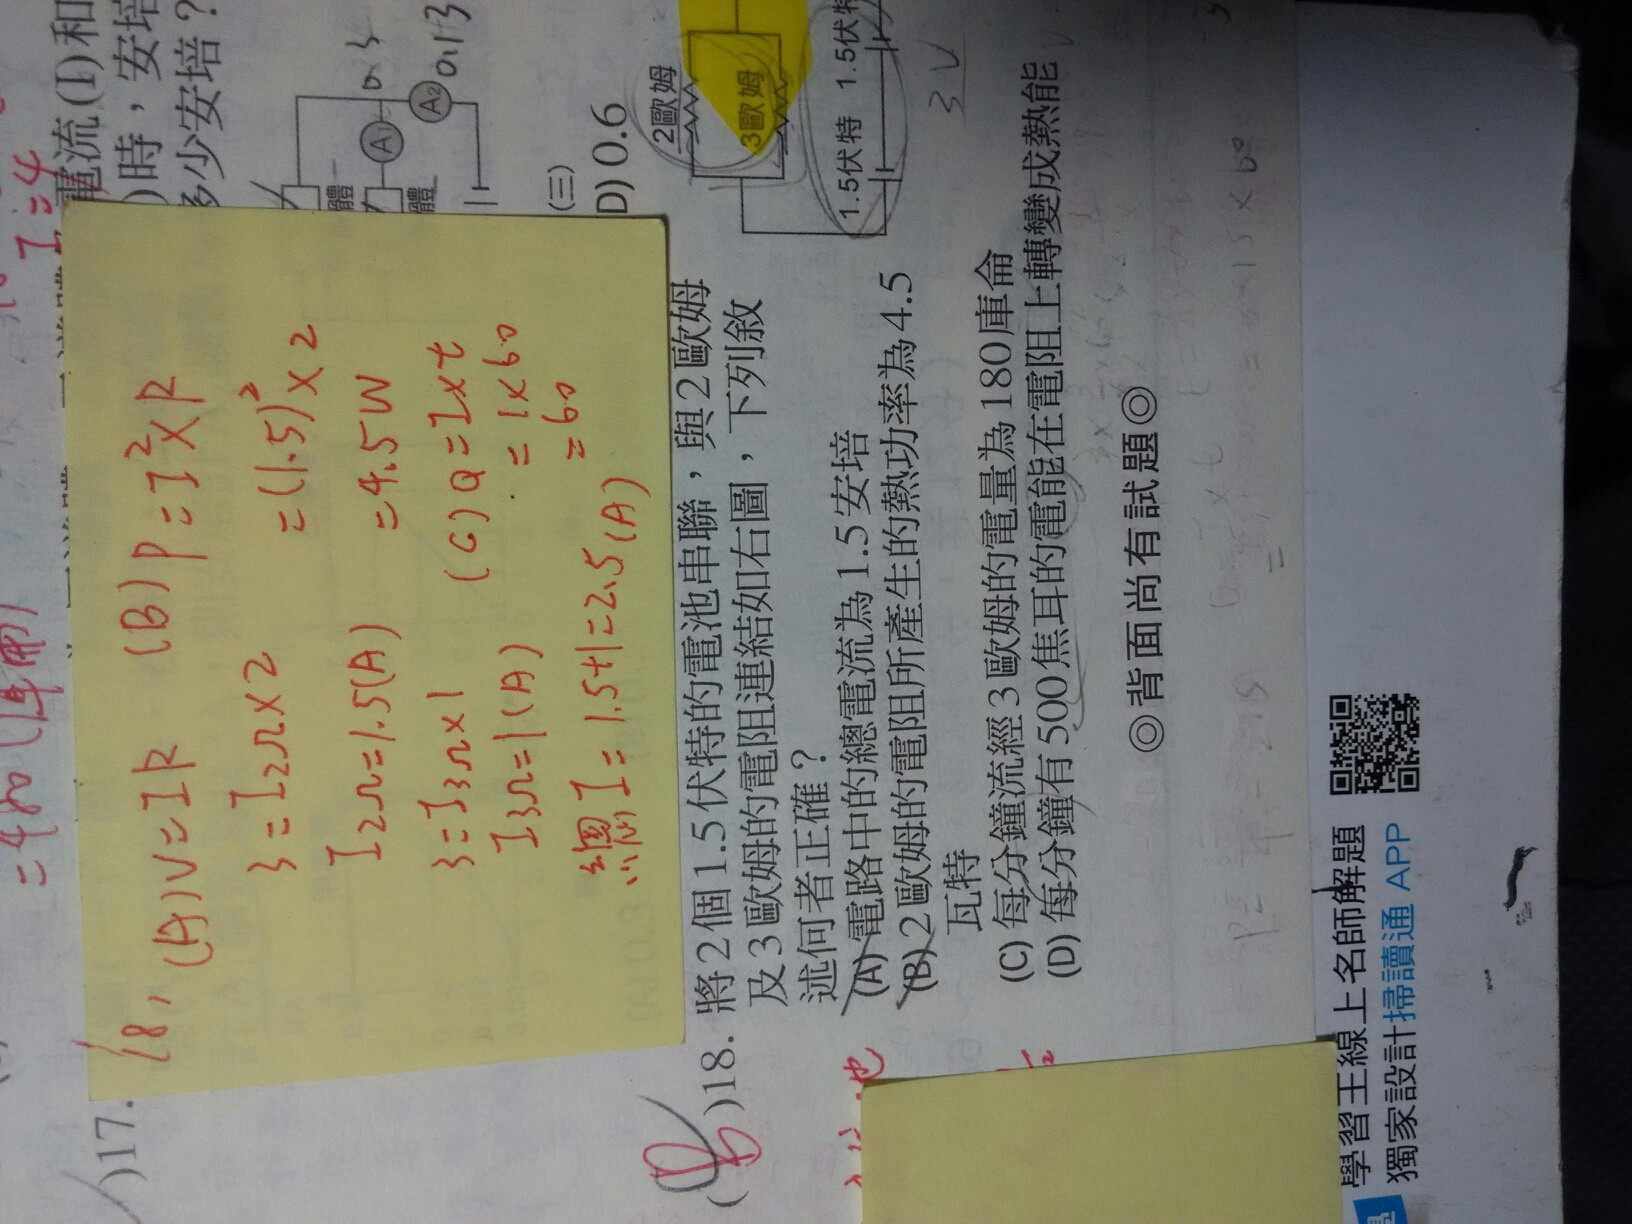 電流(I)和
)時，安培
多少安培？
I=4
=480(庫侖)
A₁
0.3
A₂
0.13
體
體
(三)
D) 0.6
)17.
18,
(A) V=IR
3=I₂Ω×2
I₂Ω=1.5(A)
3=I₃Ω×1
I₃Ω=1(A)
總I=1.5+1=2.5(A)
(B) P=I²×R
=(1.5)²×2
=4.5W
(C) Q=I×t
=1×60
=60
)18. 將2個1.5伏特的電池串聯，與2歐姆
及3歐姆的電阻連結如右圖，下列敘
述何者正確？
(A) 電路中的總電流為1.5安培
(B) 2歐姆的電阻所產生的熱功率為4.5
瓦特
(C) 每分鐘流經3歐姆的電量為180庫侖
(D) 每分鐘有500焦耳的電能在電阻上轉變成熱能
2歐姆
3歐姆
1.5伏特 1.5伏特
3V
◎背面尚有試題◎
學習王線上名師解題
獨家設計掃讀通 APP